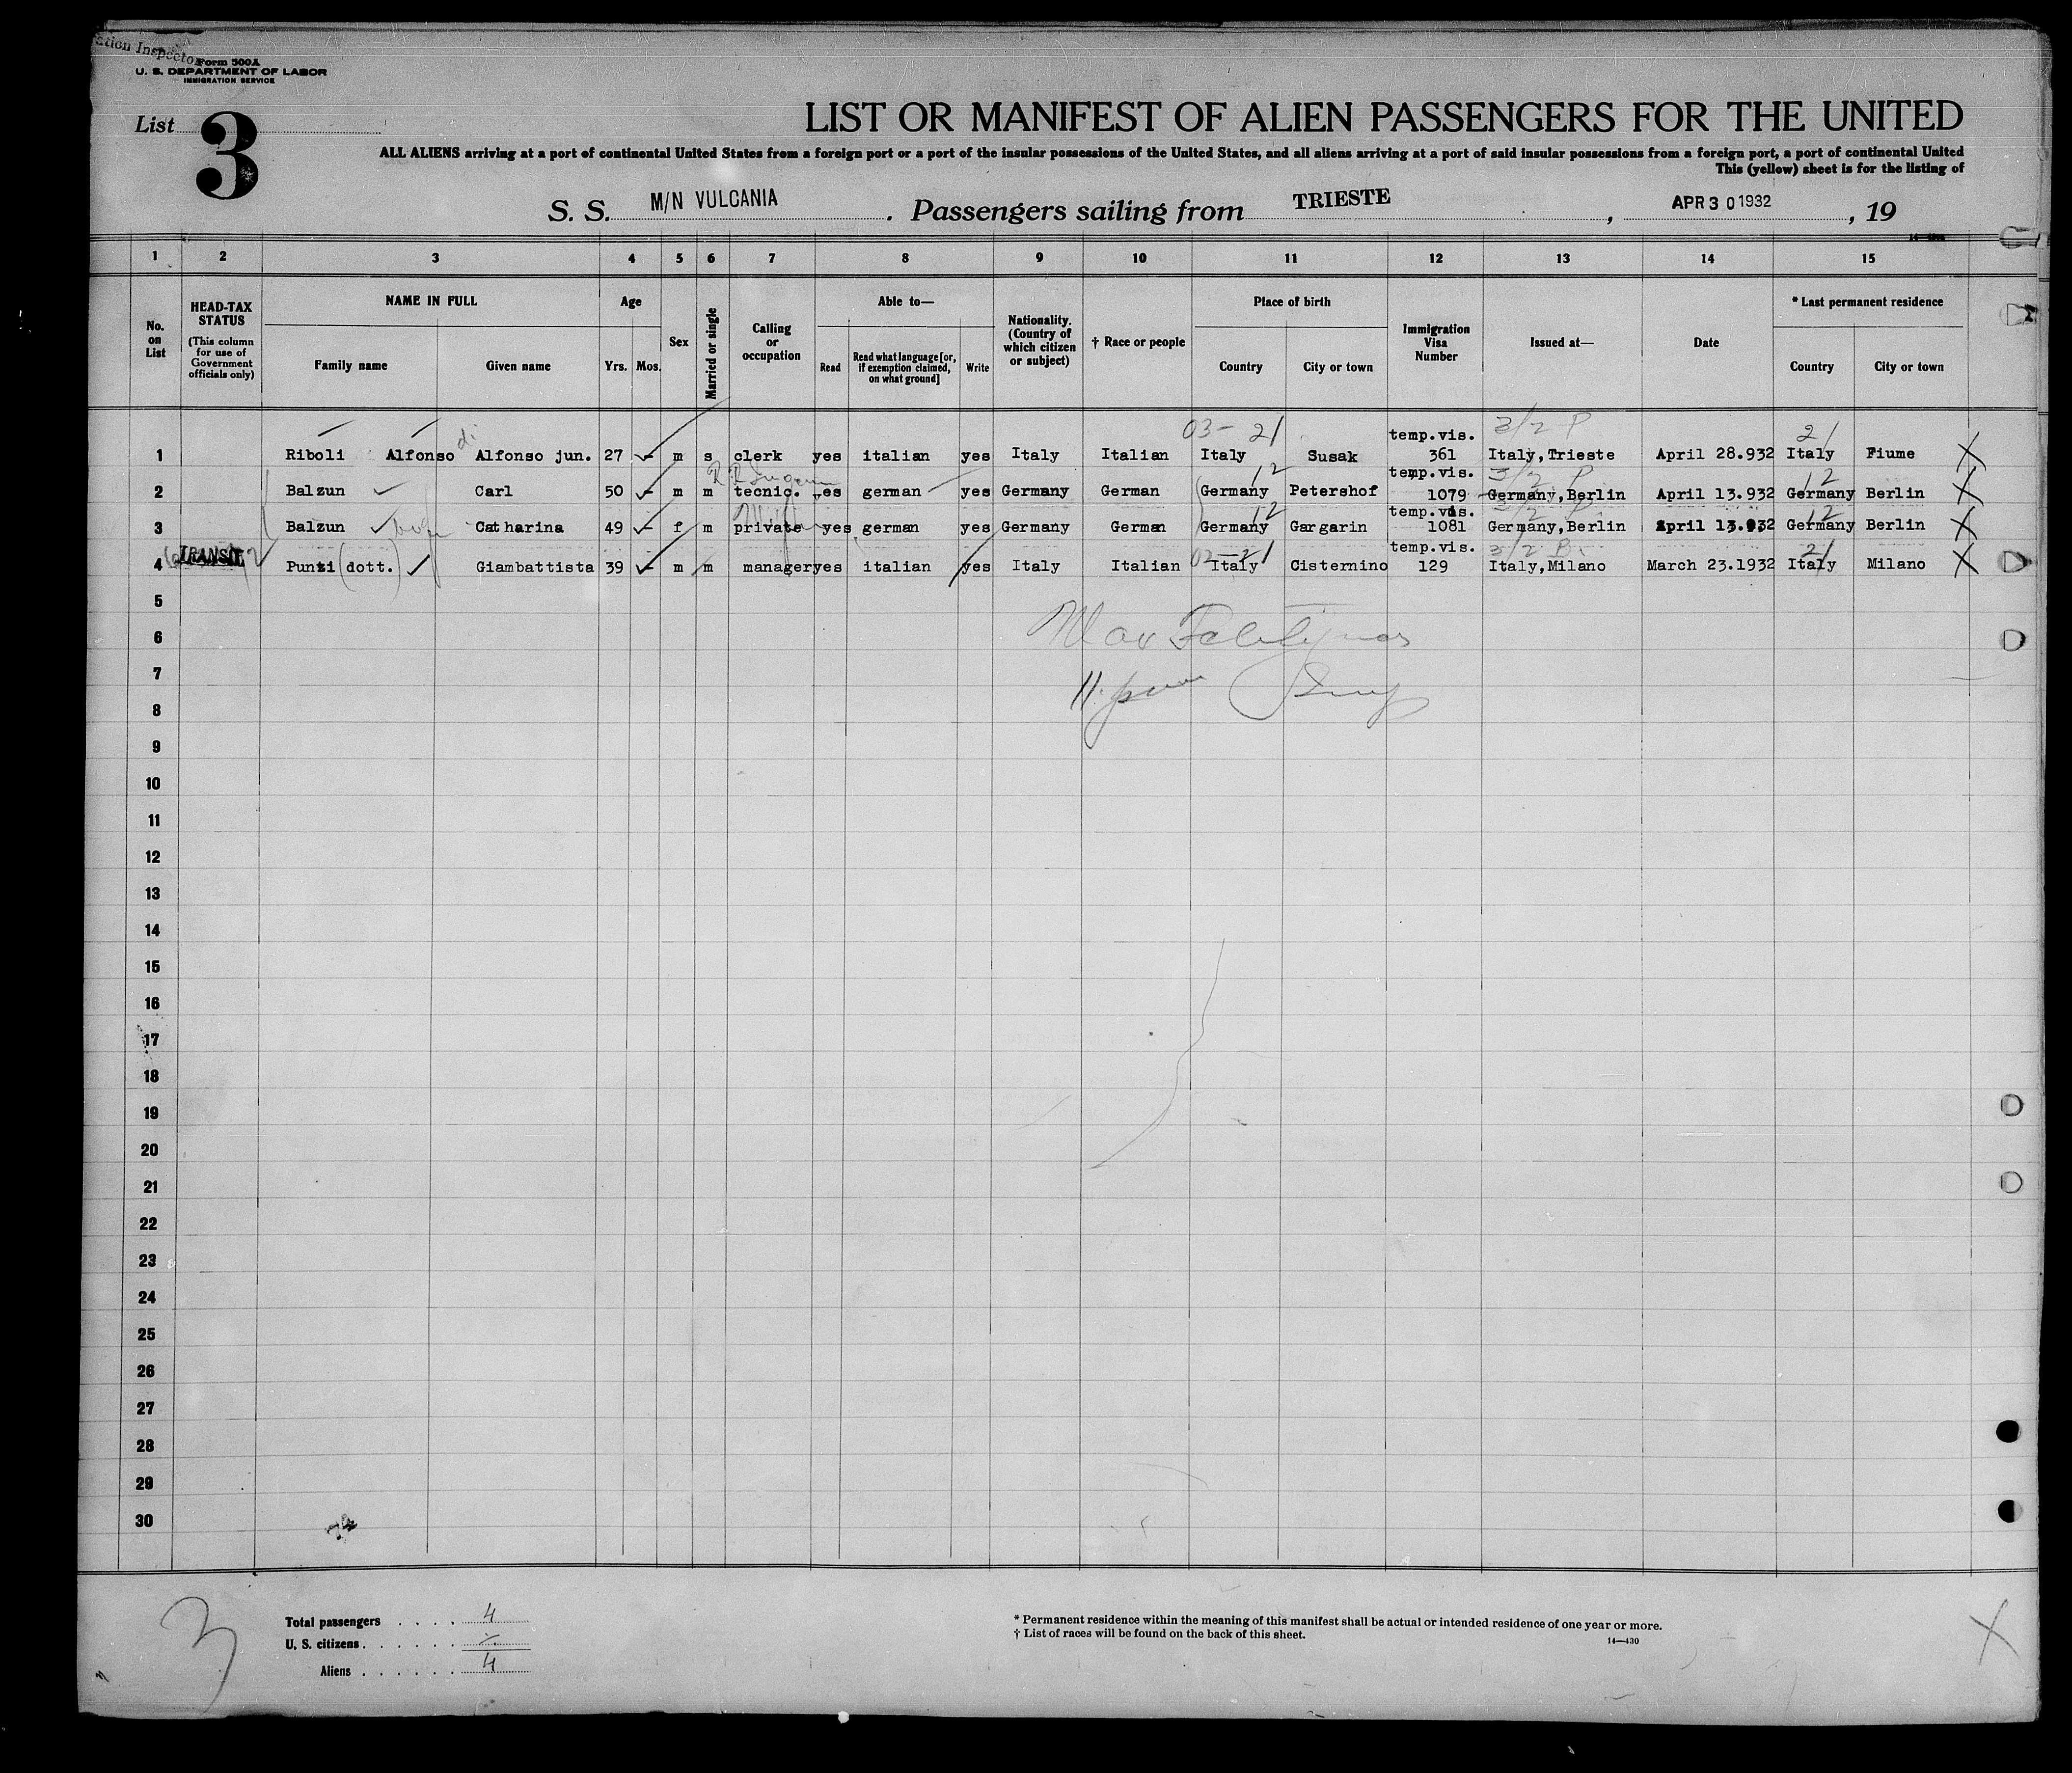 ation Inspector
Form 500A
U. S. DEPARTMENT OF LABOR
IMMIGRATION SERVICE
List 3
LIST OR MANIFEST OF ALIEN PASSENGERS FOR THE UNITED
ALL ALIENS arriving at a port of continental United States from a foreign port or a port of the insular possessions of the United States, and all aliens arriving at a port of said insular possessions from a foreign port, a port of continental United
This (yellow) sheet is for the listing of
S. S. M/N VULCANIA . Passengers sailing from TRIESTE , APR 30 1932 , 19
1 2 3 4 5 6 7 8 9 10 11 12 13 14 15
No. on List
HEAD-TAX STATUS
(This column for use of Government officials only)
NAME IN FULL
Family name Given name
Age
Yrs. Mos.
Sex
Married or single
Calling or occupation
Able to—
Read
Read what language [or, if exemption claimed, on what ground]
Write
Nationality. (Country of which citizen or subject)
† Race or people
Place of birth
Country City or town
Immigration Visa Number
Issued at—
Date
* Last permanent residence
Country City or town
03- 21 3/2 P 21
temp.vis.
1 Riboli Alfonso di Alfonso jun. 27 - m s clerk yes italian yes Italy Italian Italy Susak 361 Italy,Trieste April 28.932 Italy Fiume X
12 temp.vis. 3/2 P 12
2 Balzun Carl 50 - m m tecnic. yes german yes Germany German Germany Petershof 1079 Germany,Berlin April 13.932 Germany Berlin X
12 temp.vis. 3/2 P 12
3 Balzun Catharina 49 - f m private yes german yes Germany German Germany Gargarin 1081 Germany,Berlin April 13.932 Germany Berlin X
TRANSIT 02-21 temp.vis. 3/2 B 21
4 Punti (dott.) Giambattista 39 - m m manager yes italian yes Italy Italian Italy Cisternino 129 Italy,Milano March 23.1932 Italy Milano X
5
6
7
8
9
10
11
12
13
14
15
16
17
18
19
20
21
22
23
24
25
26
27
28
29
30
3
Total passengers . . . . 4
U. S. citizens . . . . . . -
Aliens . . . . . . 4
* Permanent residence within the meaning of this manifest shall be actual or intended residence of one year or more.
† List of races will be found on the back of this sheet.
14—430
X